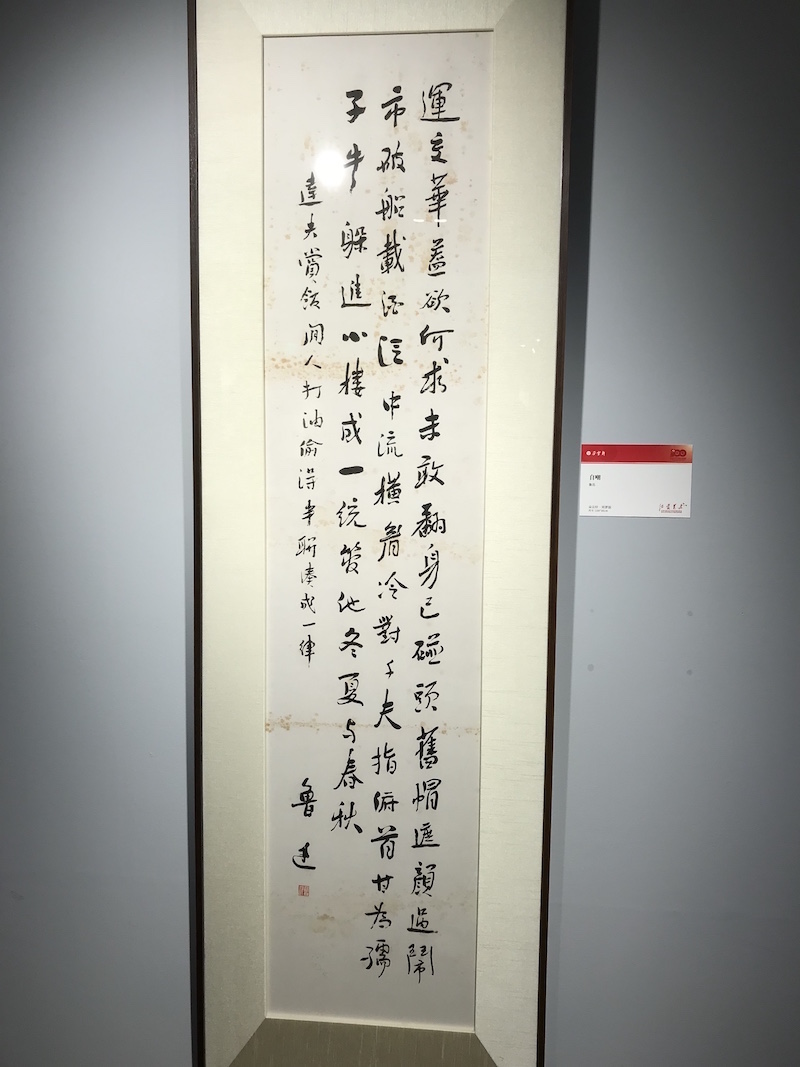 運交華蓋欲何求未敢翻身已碰頭舊帽遮顏過鬧
市破船載酒泛中流橫眉冷對千夫指俯首甘為孺
子牛躲進小樓成一统管他冬夏与春秋
達夫賞飯閒人打油偷得半聯湊成一律
魯迅
自嘲